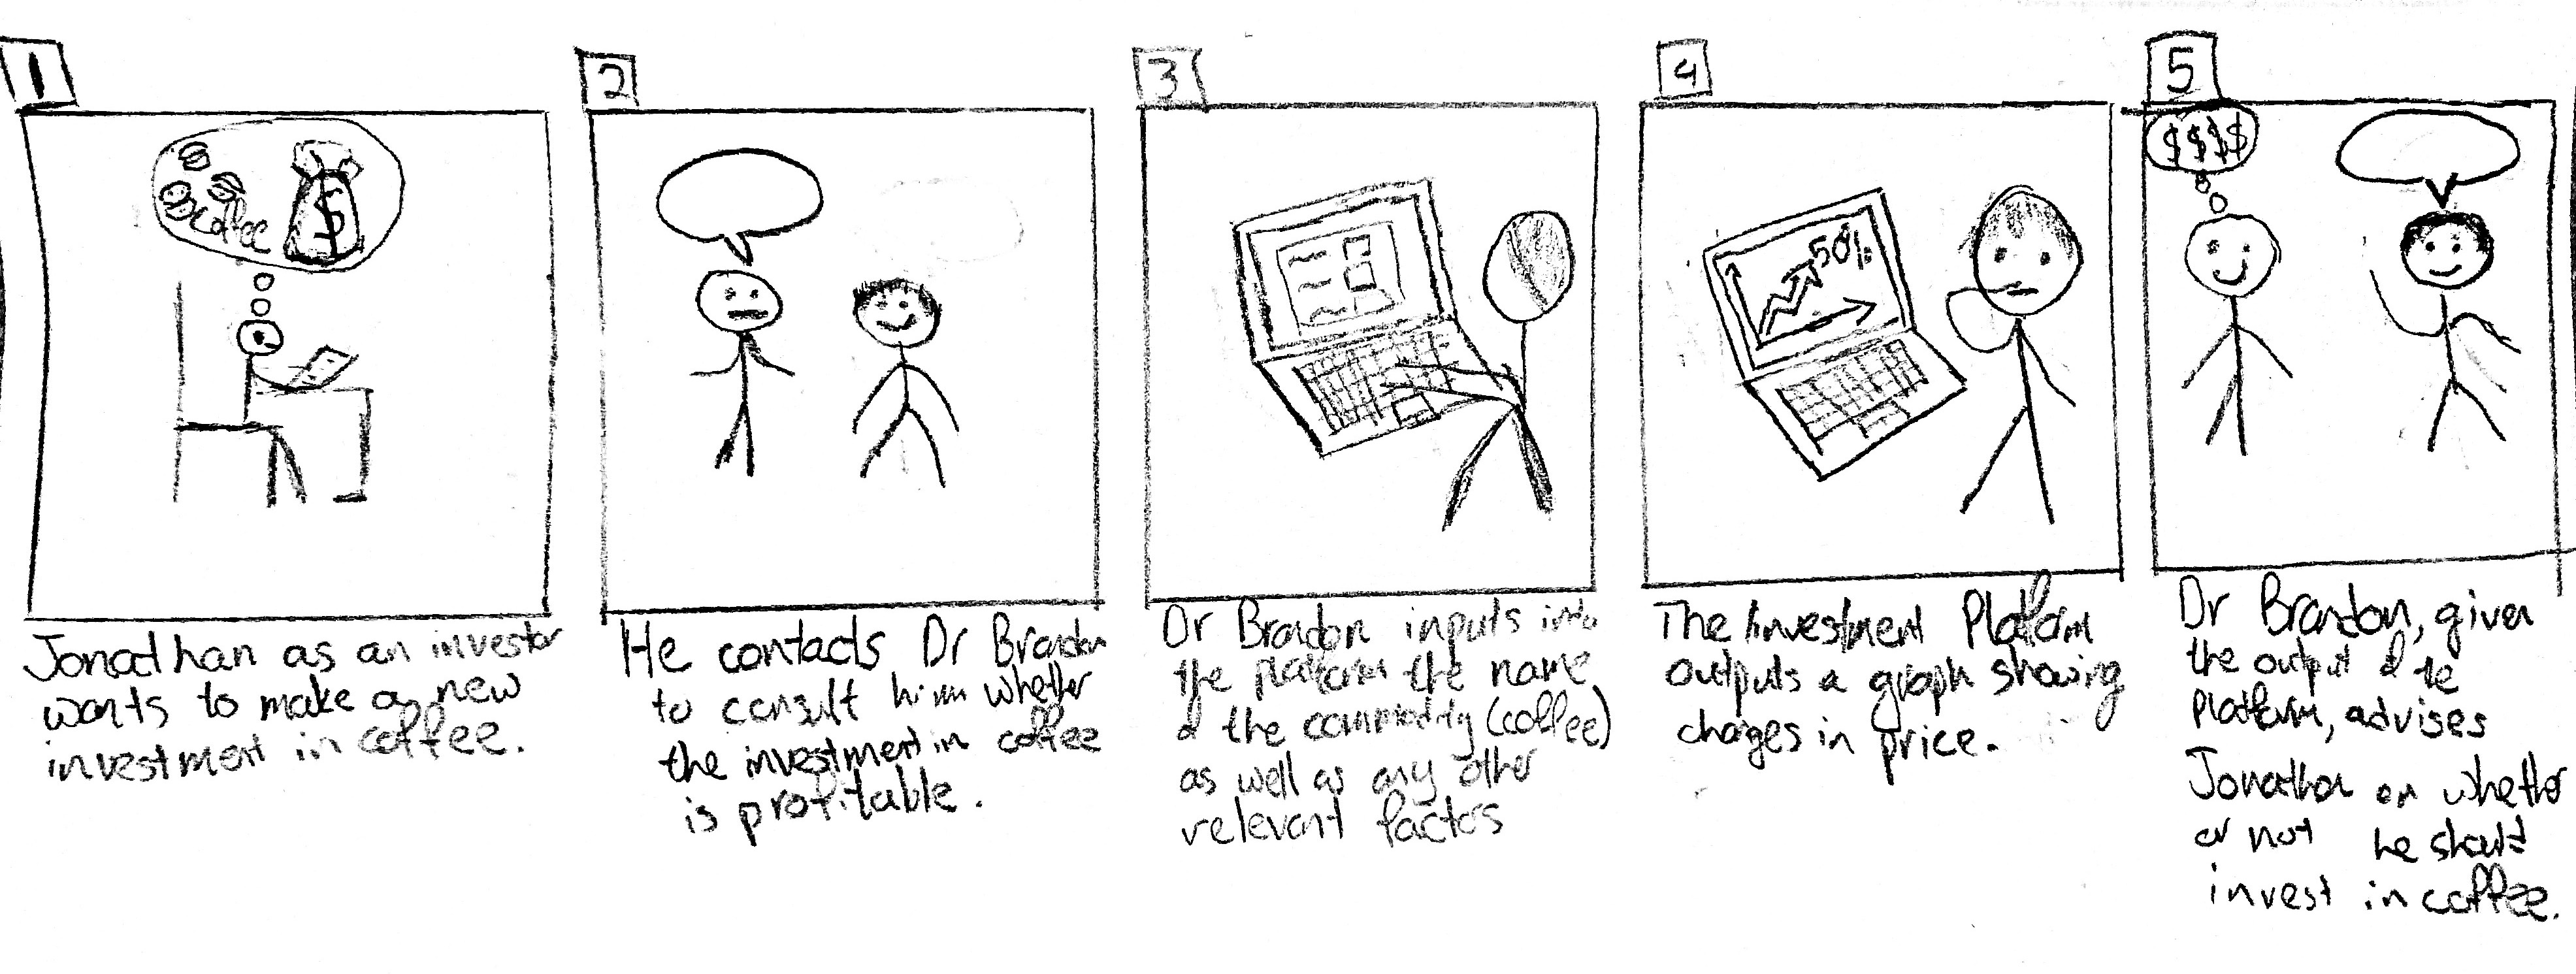 1
coffee
$
Jonathan as an investor
wants to make a new
investment in coffee.
2
He contacts Dr Brandon
to consult him whether
the investment in coffee
is profitable.
3
Dr Brandon inputs into
the platform the name
of the commodity (coffee)
as well as any other
relevant factors
4
50%
The Investment Platform
outputs a graph showing
changes in price.
5
$$$$
Dr Brandon, given
the output of the
Platform, advises
Jonathan on whether
or not he should
invest in coffee.